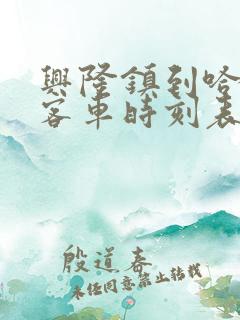 興隆鎮到哈
客車時刻表
殷道春
未经同意禁止转载